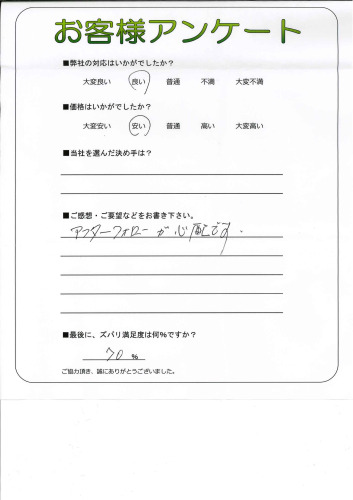 お客様アンケート
■弊社の対応はいかがでしたか？
大変良い 良い 普通 不満 大変不満
■価格はいかがでしたか？
大変安い 安い 普通 高い 大変高い
■当社を選んだ決め手は？
■ご感想・ご要望などをお書き下さい。
アフターフォローが心配です。
■最後に、ズバリ満足度は何%ですか？
70 %
ご協力頂き、誠にありがとうございました。